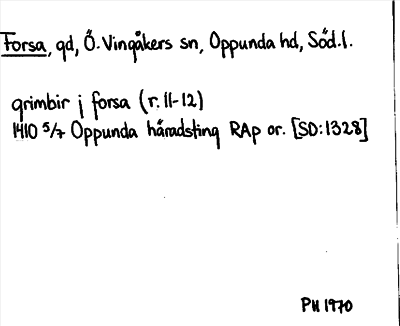 Forsa, gd, Ö. Vingåkers sn, Oppunda hd, Söd.l.
grimbir j forsa (r. 11-12)
1410 5/7 Oppunda häradsting RAp or. [SD:1328]
PH 1970